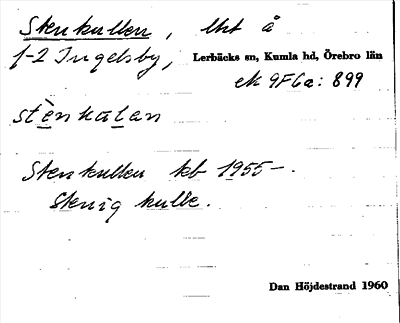 Stenkullen, lht å
1-2 Ingelsby, Lerbäcks sn, Kumla hd, Örebro län
ek 9F6a: 899
stènkulan
Stenkullen kb 1955-.
Stenig kulle.
Dan Höjdestrand 1960